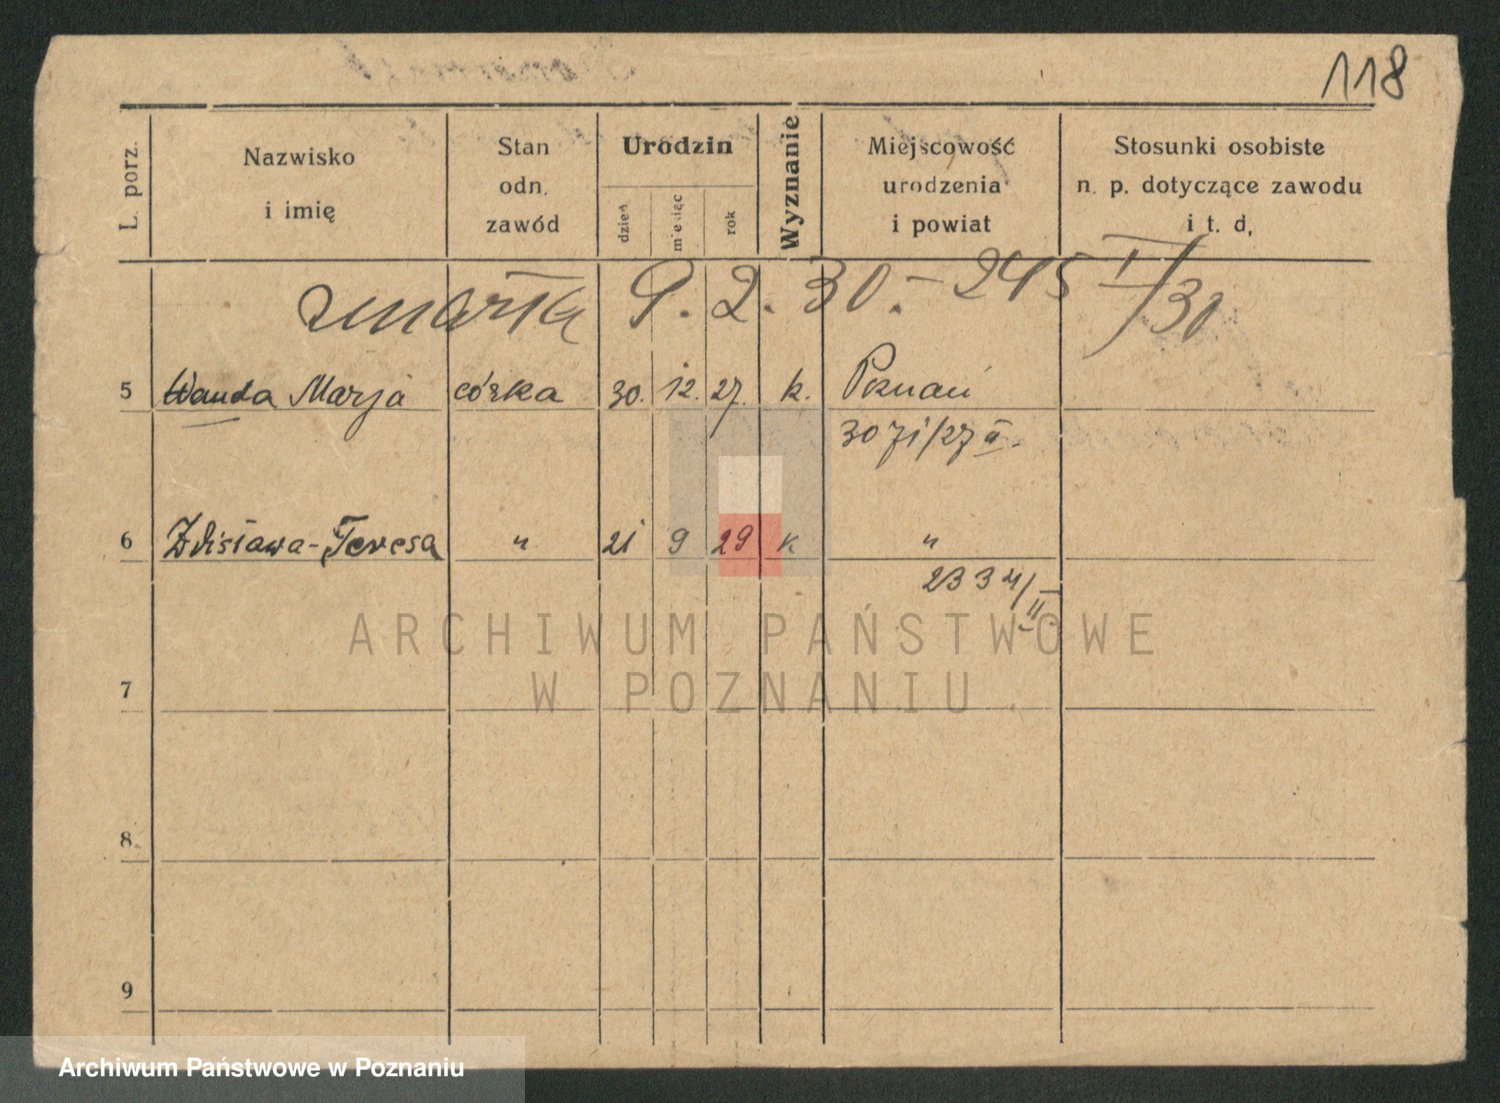 118
L. porz.
Nazwisko
i imię
Stan
odn.
zawód
Urodzin
dzień
miesiąc
rok
Wyznanie
Miejscowość
urodzenia
i powiat
Stosunki osobiste
n. p. dotyczące zawodu
i t. d.
zmarła 9. 2. 30. - 245 I/30
5 Wanda Marja córka 30. 12. 27. k. Poznań
3071/27 II.
6 Zdisława-Teresa " 21 9 29 k "
2334/II
ARCHIWUM PAŃSTWOWE
W POZNANIU
7
8
9
Archiwum Państwowe w Poznaniu